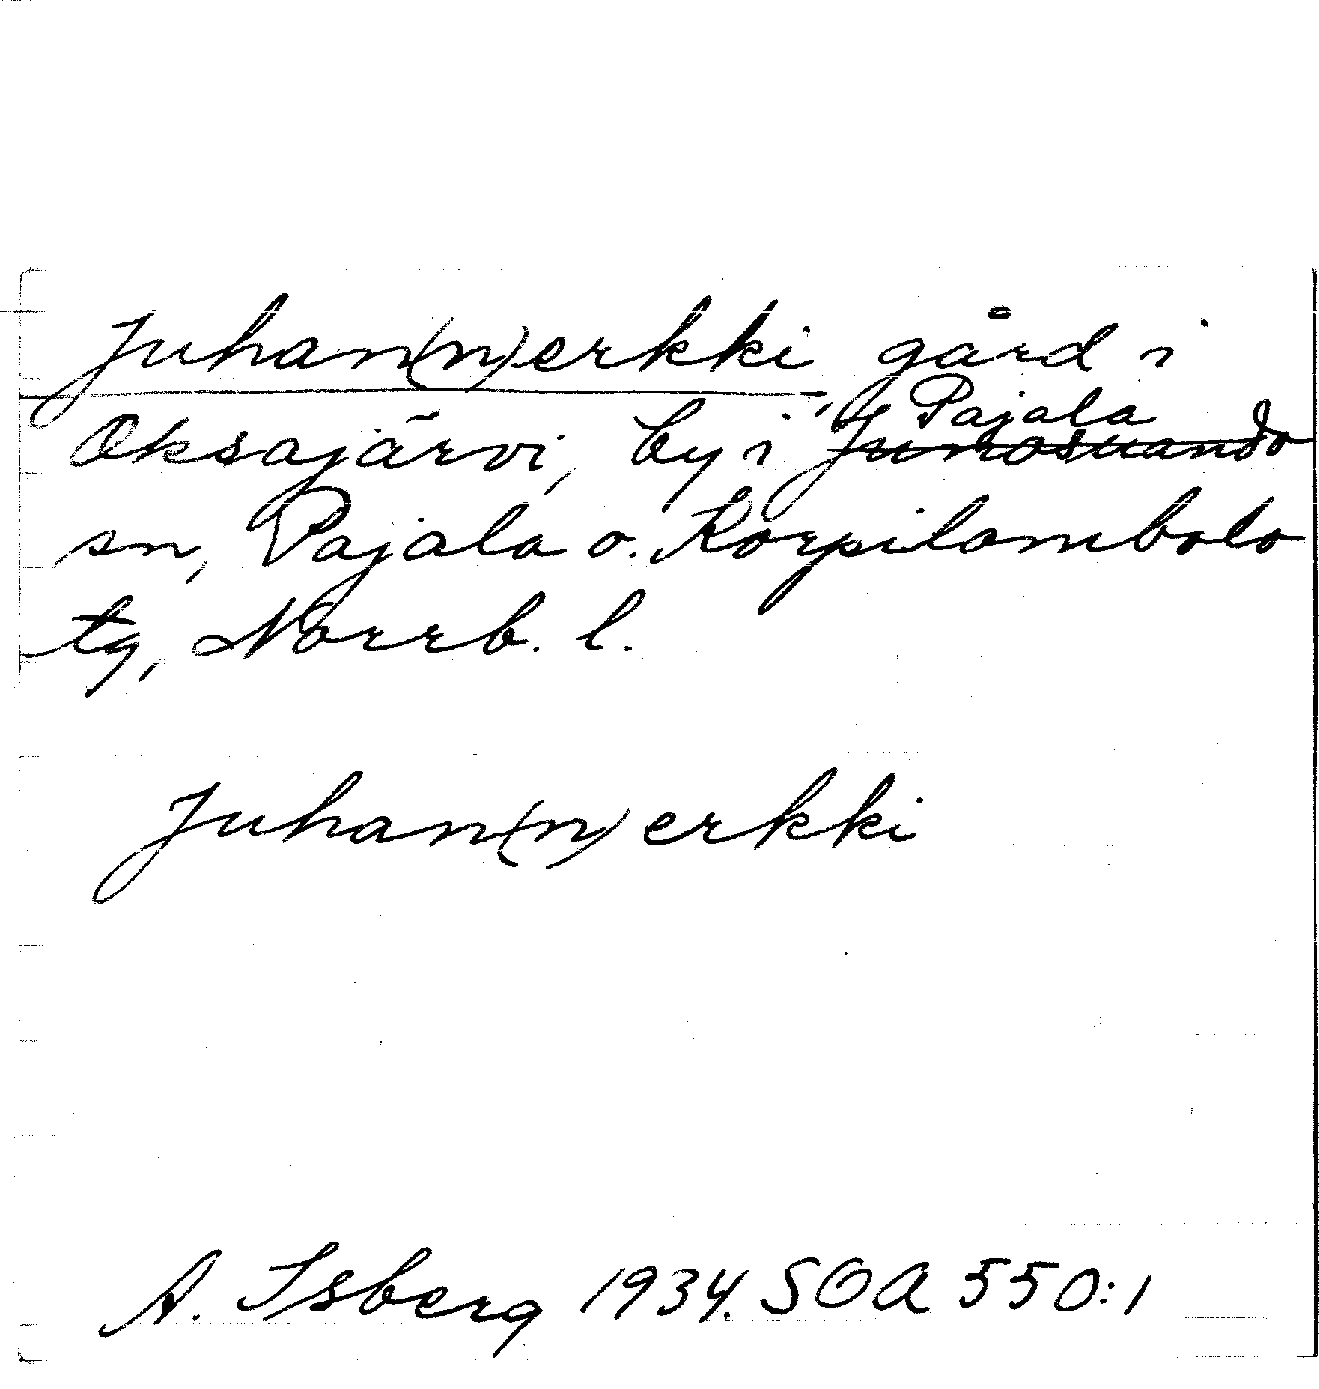 Juhan(n)erkki gård i
Pajala
Oksajärvi, by i Junosuando
sn, Pajala o. Korpilombolo
tg, Norrb. l.
Juhan(n)erkki
A. Isberg 1934. SOA 550:1